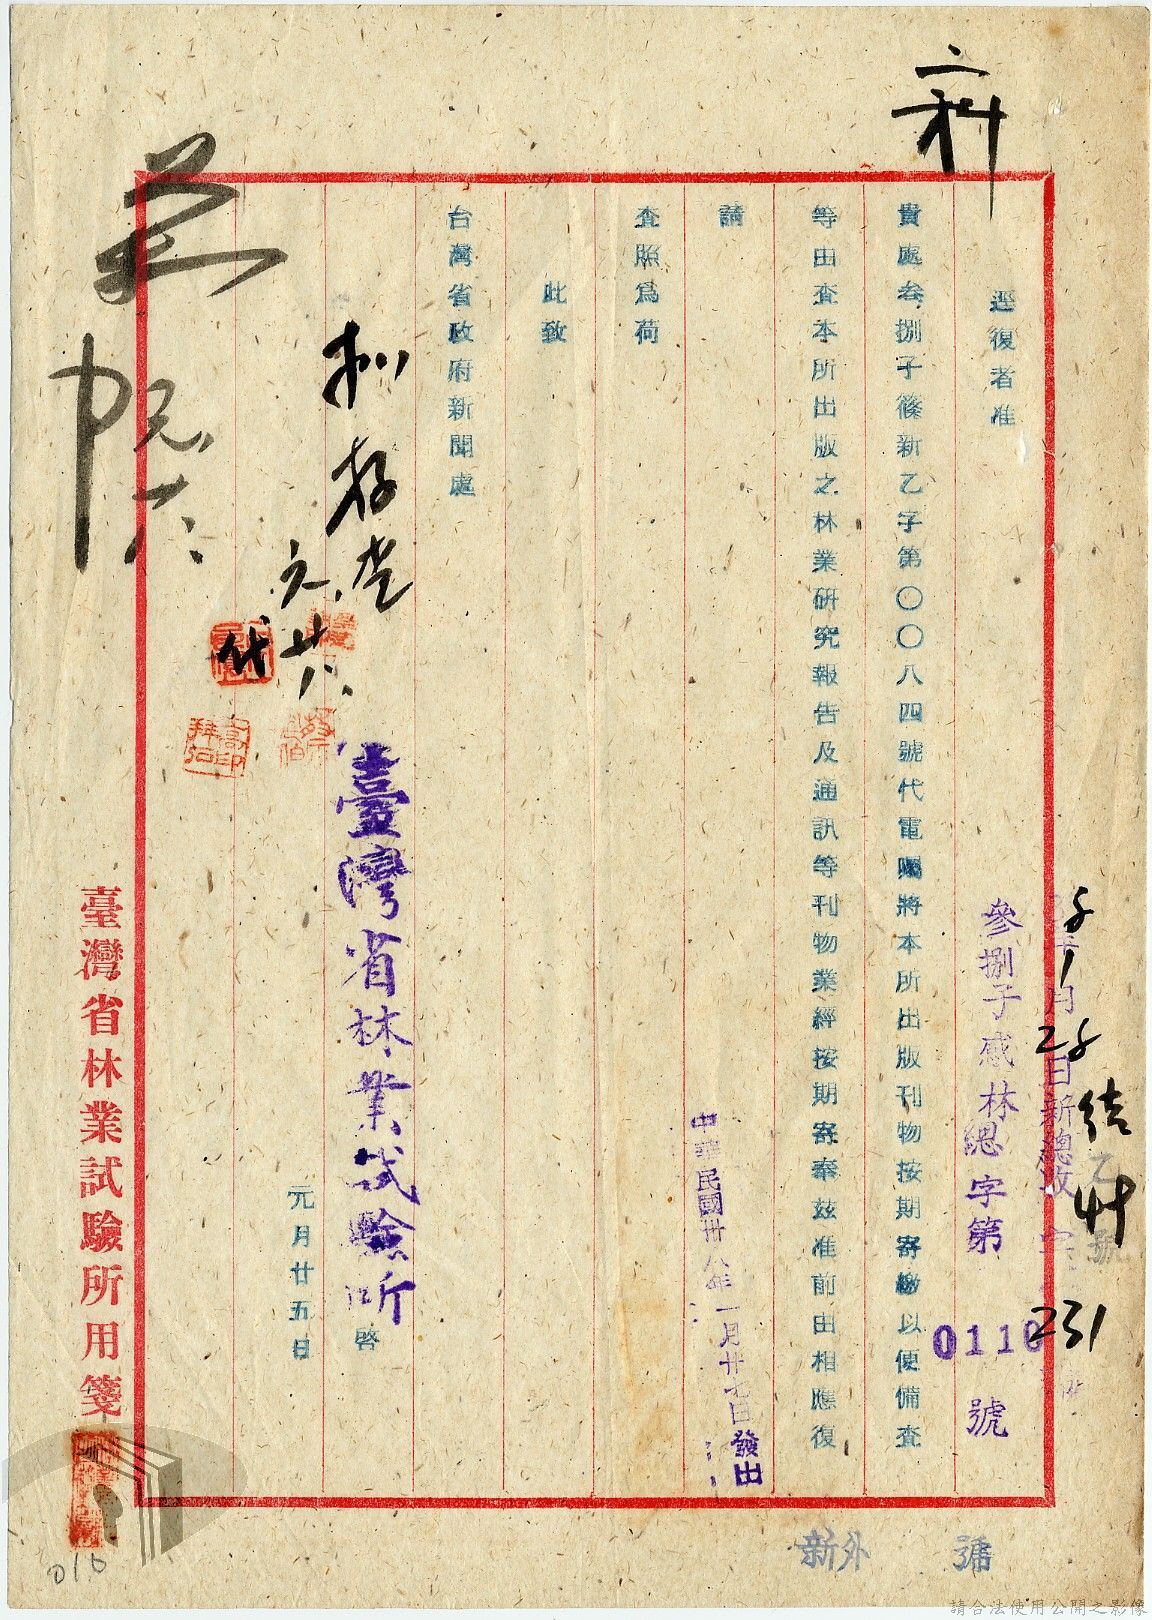 二科
逕復者准
貴處叁捌子篠新乙字第〇〇八四號代電囑將本所出版刊物按期寄繳以便備查
等由查本所出版之林業研究報告及通訊等刊物業經按期寄奉玆准前由相應復
請
查照爲荷
此致
台灣省政府新聞處
臺灣省林業試驗所
啓
元月廿五日
參捌子感林總字第
0110
號
月28日新總收
231
中華民國卅八年一月廿七日發出
擬存查
元、廿八、
代
臺灣省林業試驗所用箋
新外
號
016
請合法使用公開之影像